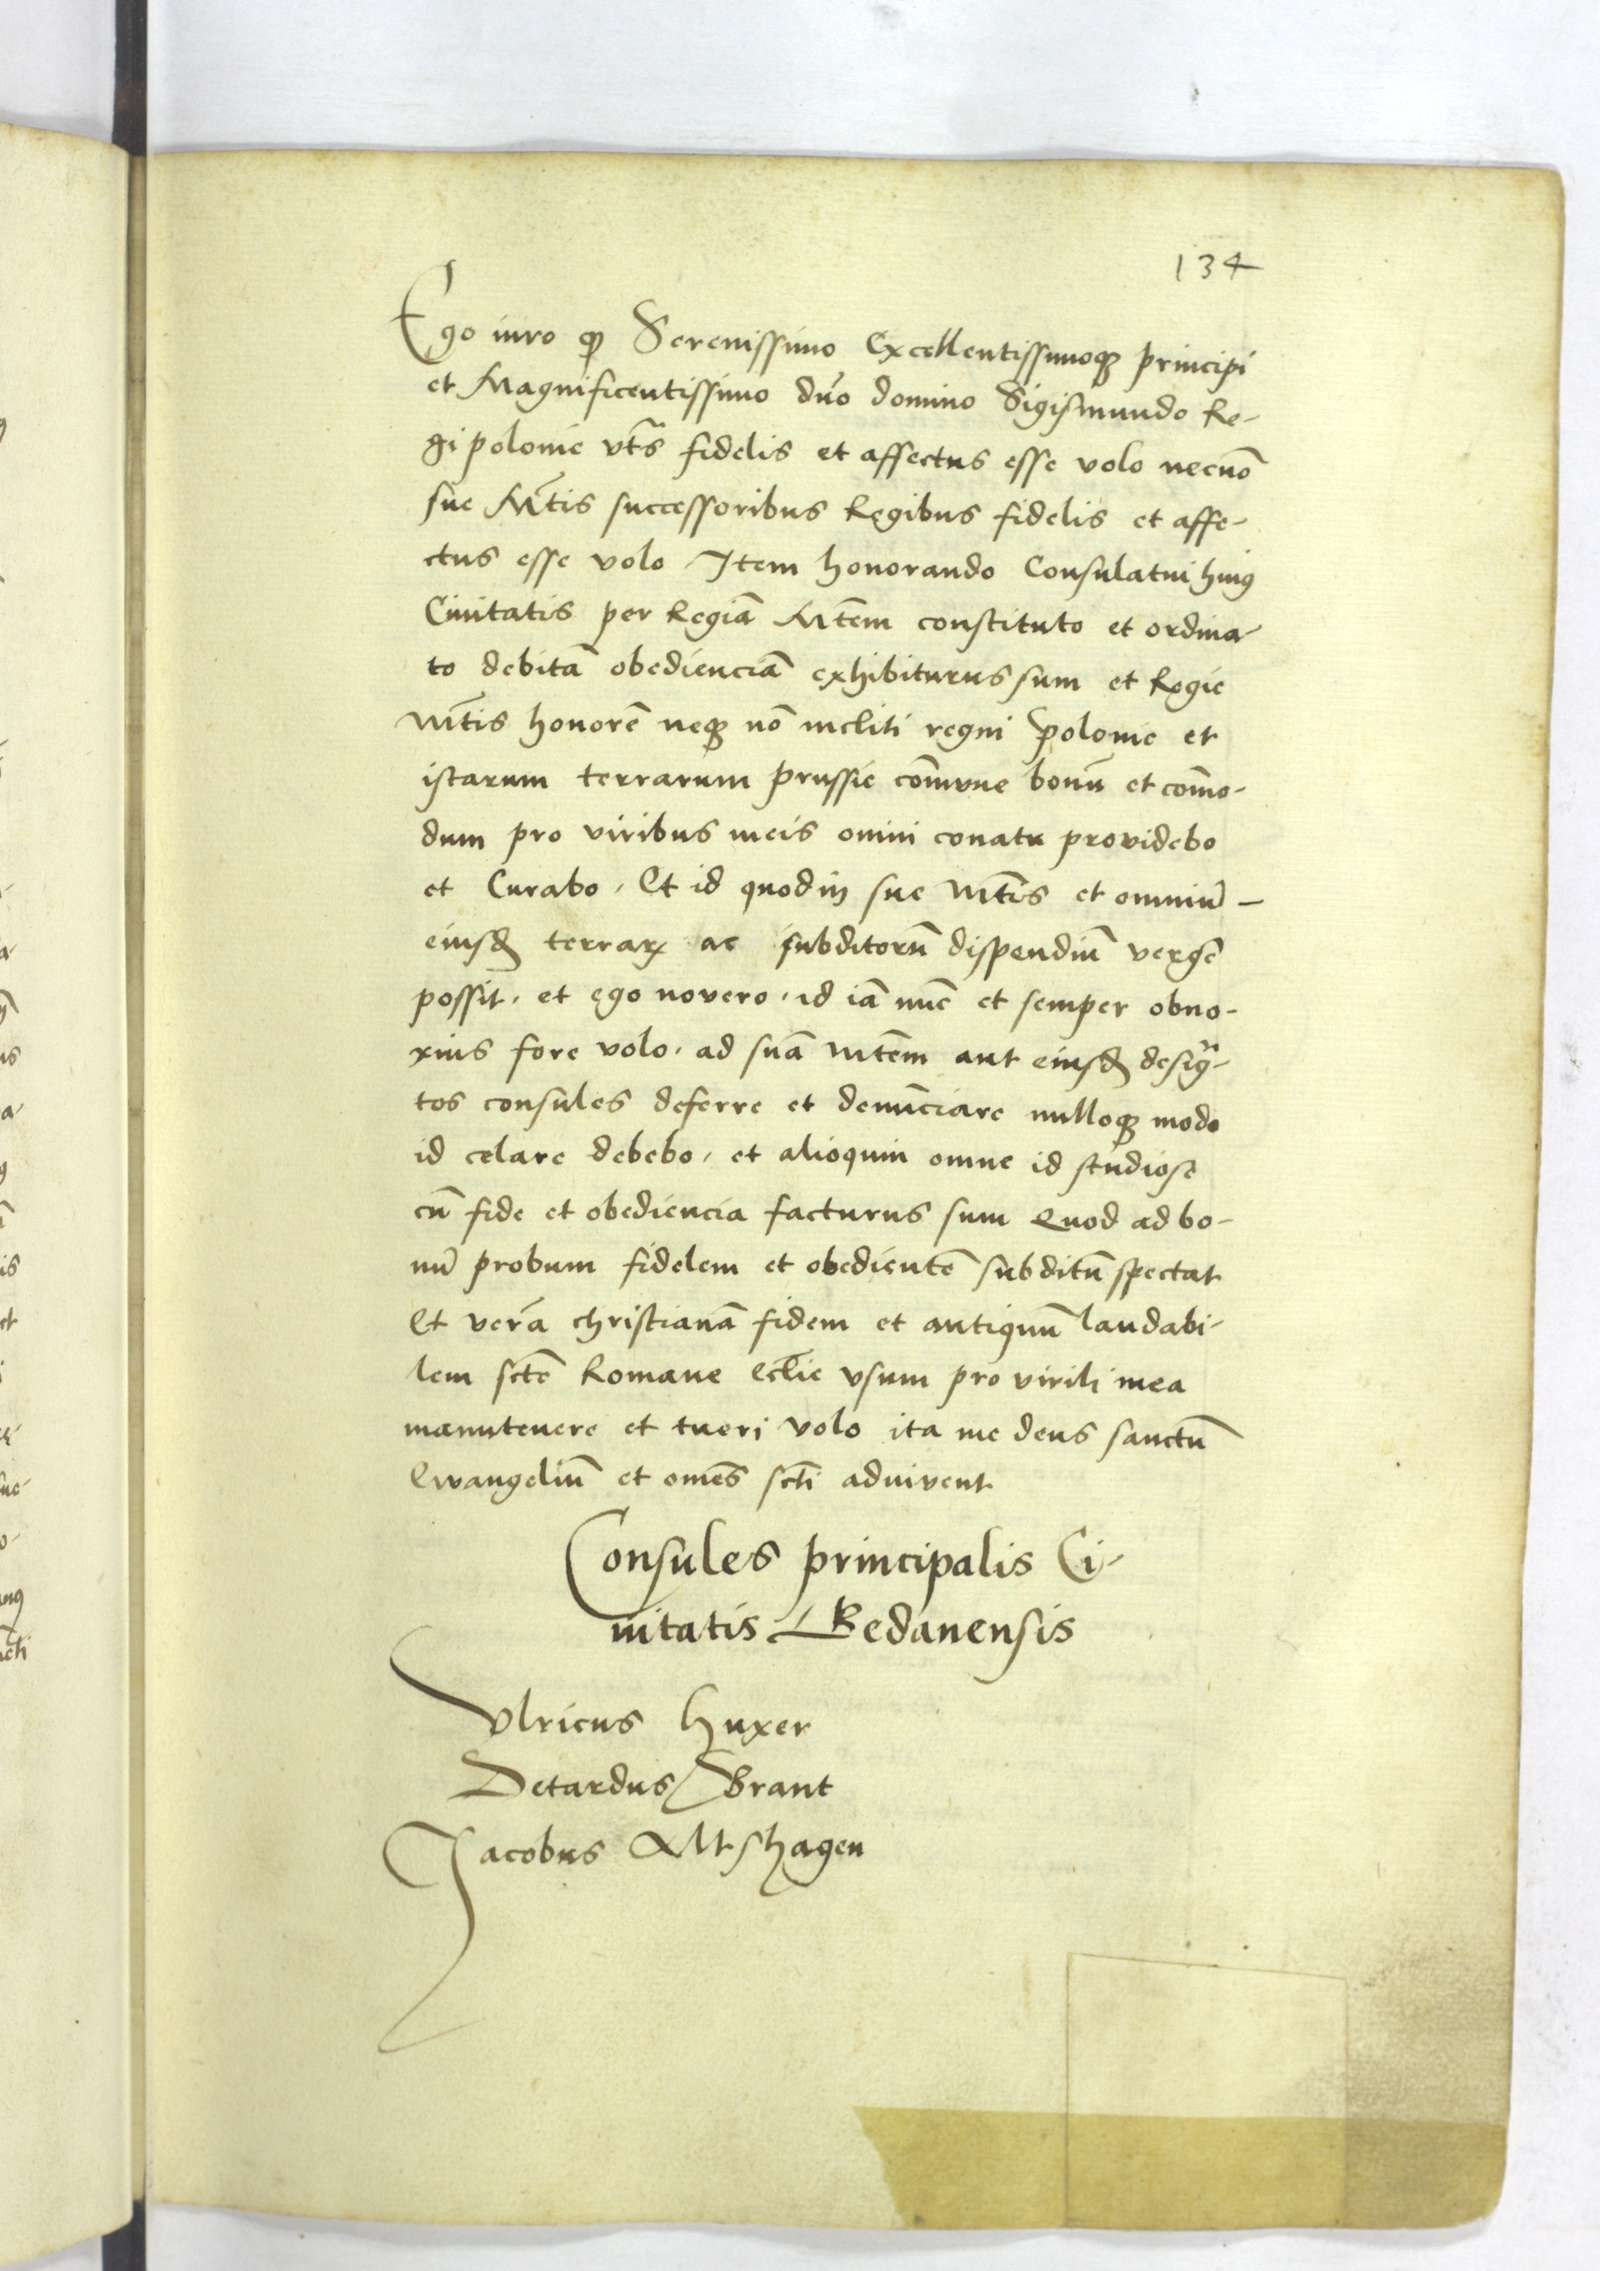 134
Ego iuro qd Serenissimo Excellentissimoqz principi
et Magnificentissimo dno domino Sigismundo Re-
gi polonie vts fidelis et affectus esse volo necnō
sue Mtis successoribus Regibus fidelis et affe-
ctus esse volo Item honorando Consulatui huiꝰ
Ciuitatis per Regiā Mtem constituto et ordina-
to debitā obedienciā exhibiturus sum et Regie
Mtis honorē neqz nō incliti regni polonie et
istarum terrarum prussie cōmune bonū et cōmo-
dum pro viribus meis omni conatu providebo
et Curabo, Et id quod in sue Mtis et omniū
eiusd terraꝝ ac subditorū dispendiū vergē
possit, et ego novero, id iā nūc et semper obno-
xius fore volo, ad suā Mtem aut eiusd desig-
tos consules deferre et denūciare nulloqz modo
id celare debebo, et alioquin omne id studiose
cū fide et obediencia facturus sum Quod ad bo-
nū probum fidelem et obedientē subditū spectat
Et verā christianā fidem et antiquū laudabi-
lem scte Romane eclie vsum pro virili mea
manutenere et tueri volo ita me deus sanctū
Ewangeliū et omēs scti adiuvent
Consules principalis Ci-
uitatis Gedanensis
Vlricus Huxer
Detardus Brant
Jacobus Altshagen